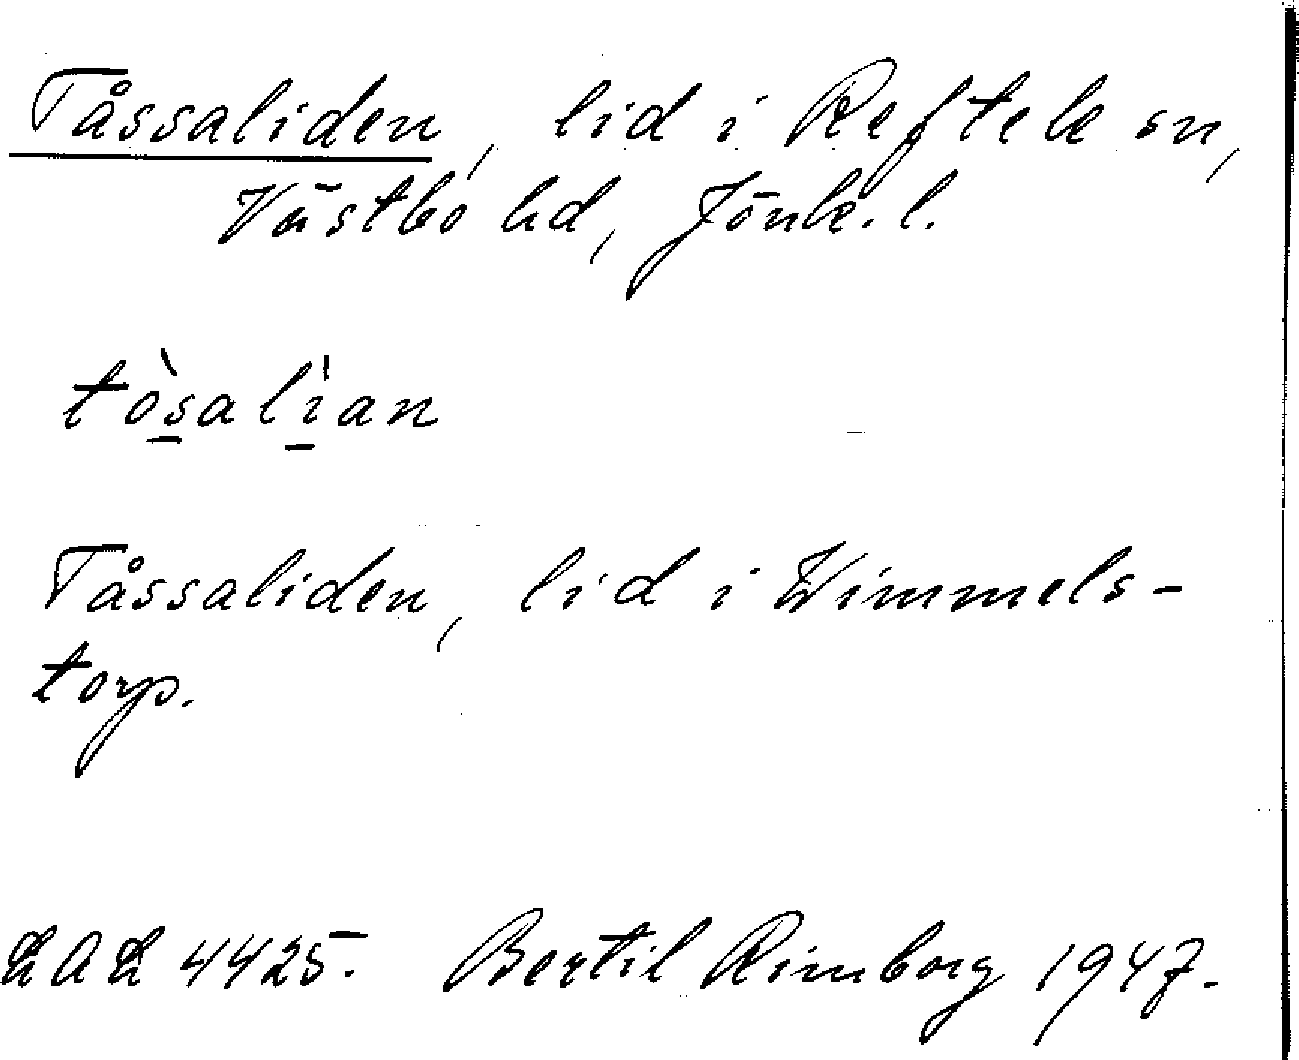 Tåssaliden, lid i Reftele sn,
Västbo hd, Jönk. l.
tòsalìan
Tåssaliden, lid i Wimmels-
torp.
LAL 4425. Bertil Rimborg 1947.